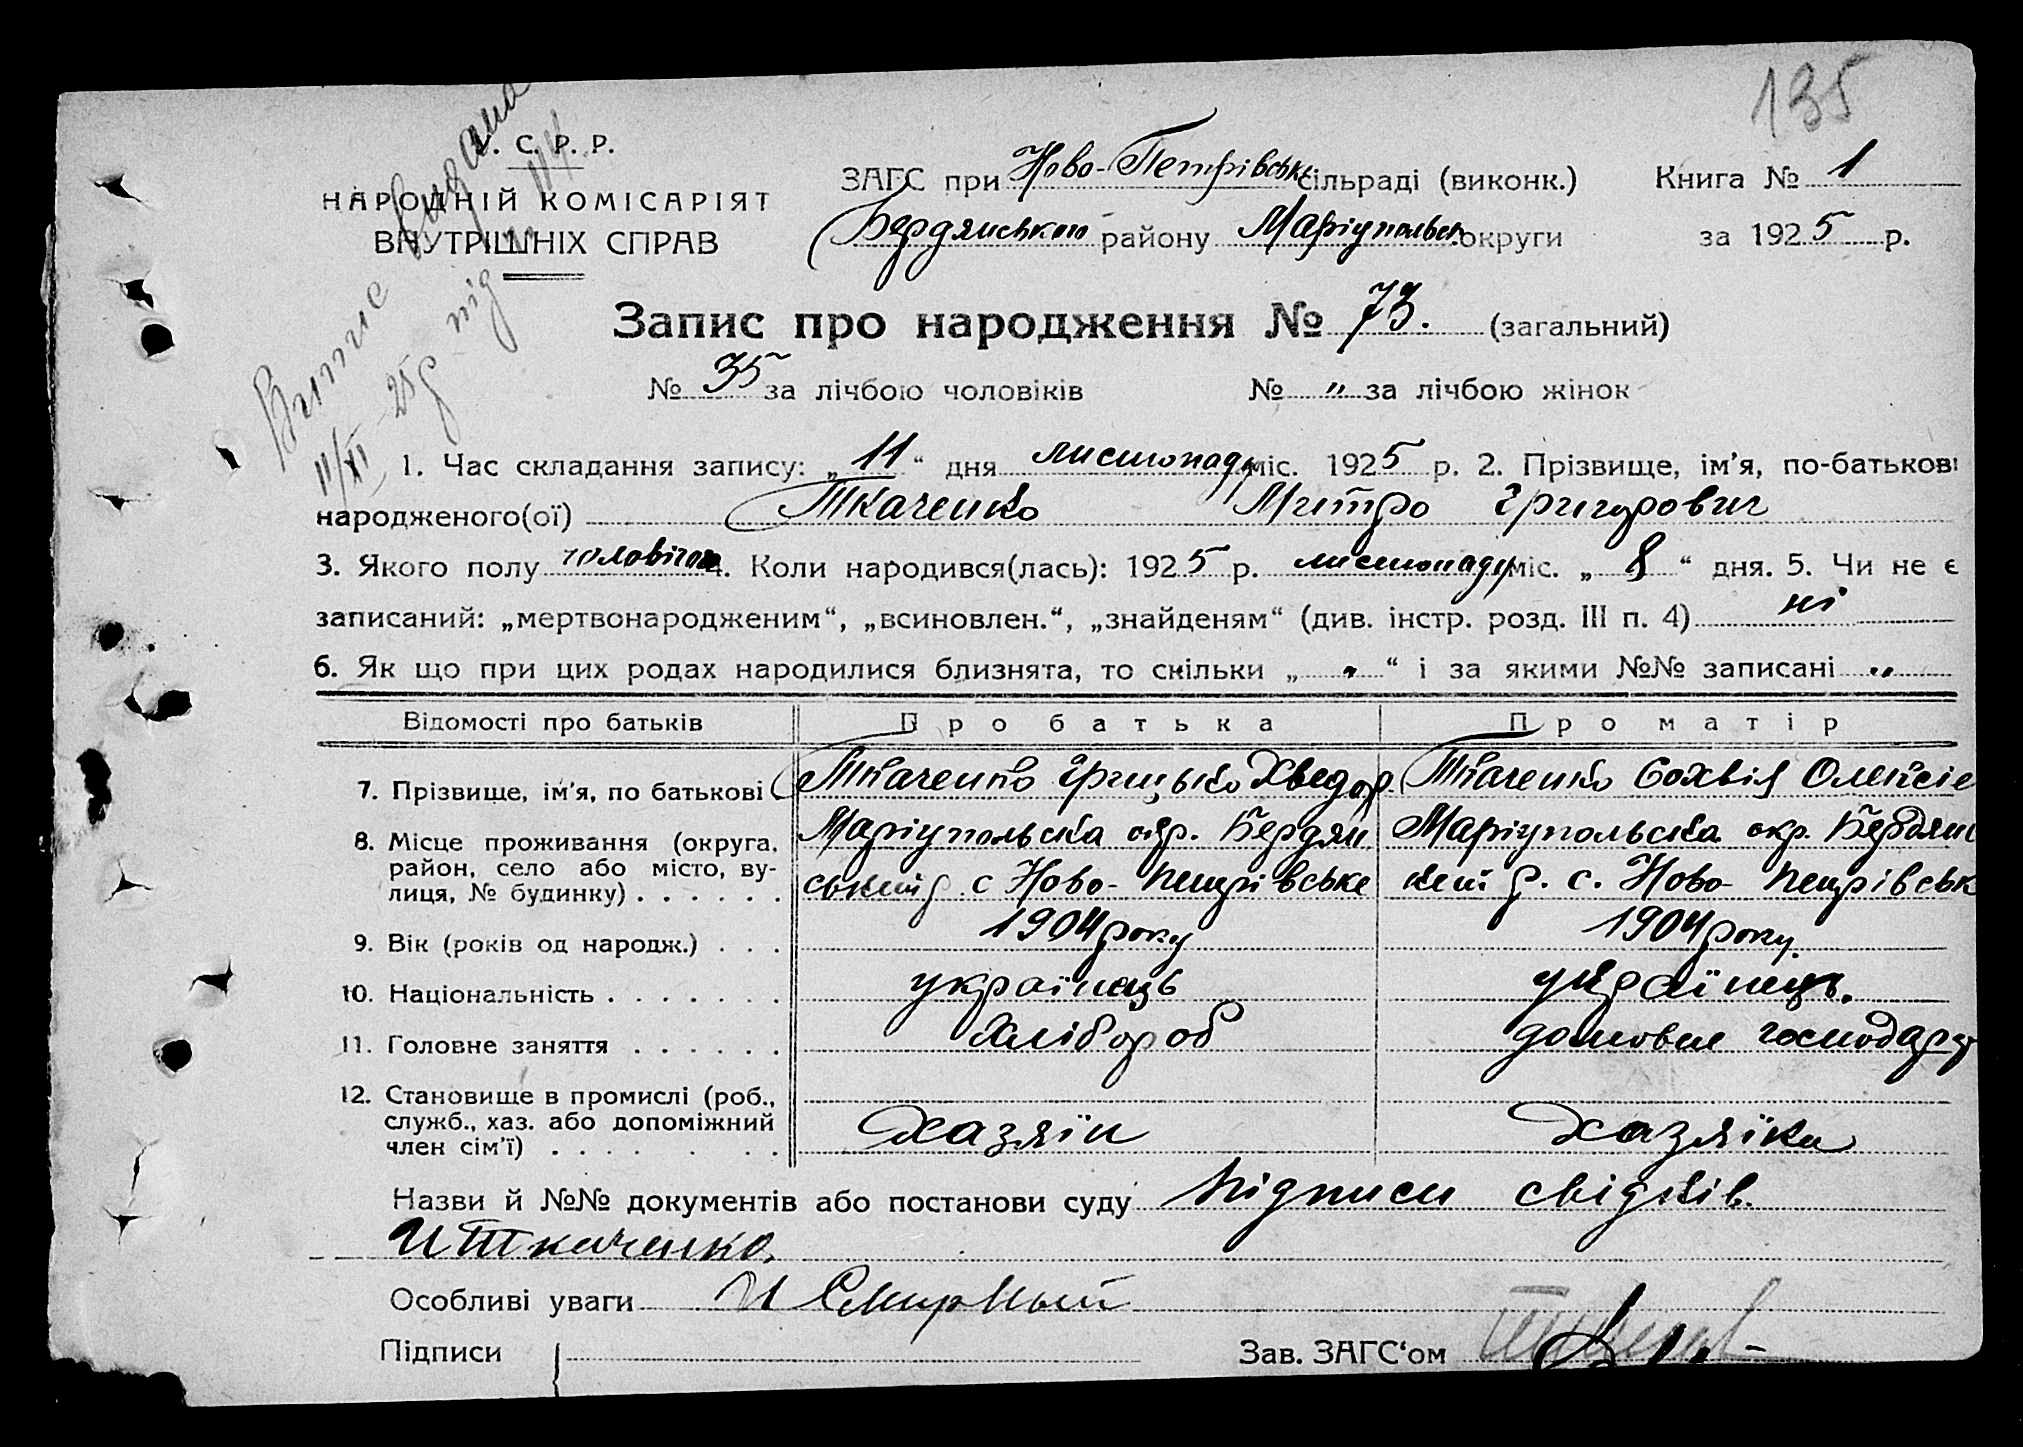 135
У. С. Р. Р.
НАРОДНІЙ КОМІСАРІЯТ
ВНУТРІШНІХ СПРАВ
Витис видана
11/XI 25р під № 114
ЗАГС при Ново-Петрівськ сільраді (виконк.) Книга № 1
Бердянського району Маріупольск округи за 1925 р.
Запис про народження № 73. (загальний)
№ 35 за лічбою чоловіків № " за лічбою жінок
1. Час складання запису: „ 11 “ дня листопаду міс. 1925 р. 2. Прізвище, ім’я, по-батькові
народженого(ої) Ткаченко Митро Григорович
3. Якого полу чоловічого 4. Коли народився(лась): 1925 р. листопаду міс. „ 8 “ дня. 5. Чи не є
записаний: „мертвонародженим“, „всиновлен.“, „знайденям“ (див. інстр. розд. III п. 4) ні
6. Як що при цих родах народилися близнята, то скільки „ " “ і за якими №№ записані "
Відомості про батьків Про батька Про матір
7. Прізвище, ім’я, по батькові Ткаченко Грицько Хведор. Ткаченко Сохвія Олексіє
8. Місце проживання (округа, район, село або місто, вулиця, № будинку) Маріупольська окр. Бердян Маріупольська окр. Бердянс
ський р. с Ново-Петрівське кий р. с. Ново-Петрівськ
9. Вік (років од народж.) 1904 року 1904 року.
10. Національність українець українець.
11. Головне заняття Хлібороб домовне господарст
12. Становище в промислі (роб., служб., хаз. або допоміжний член сім’ї) Хазяїн Хазяїка
Назви й №№ документів або постанови суду Підписи свідків.
И Ткаченко,
Особливі уваги И Смирный
Підписи Зав. ЗАГС‘ом